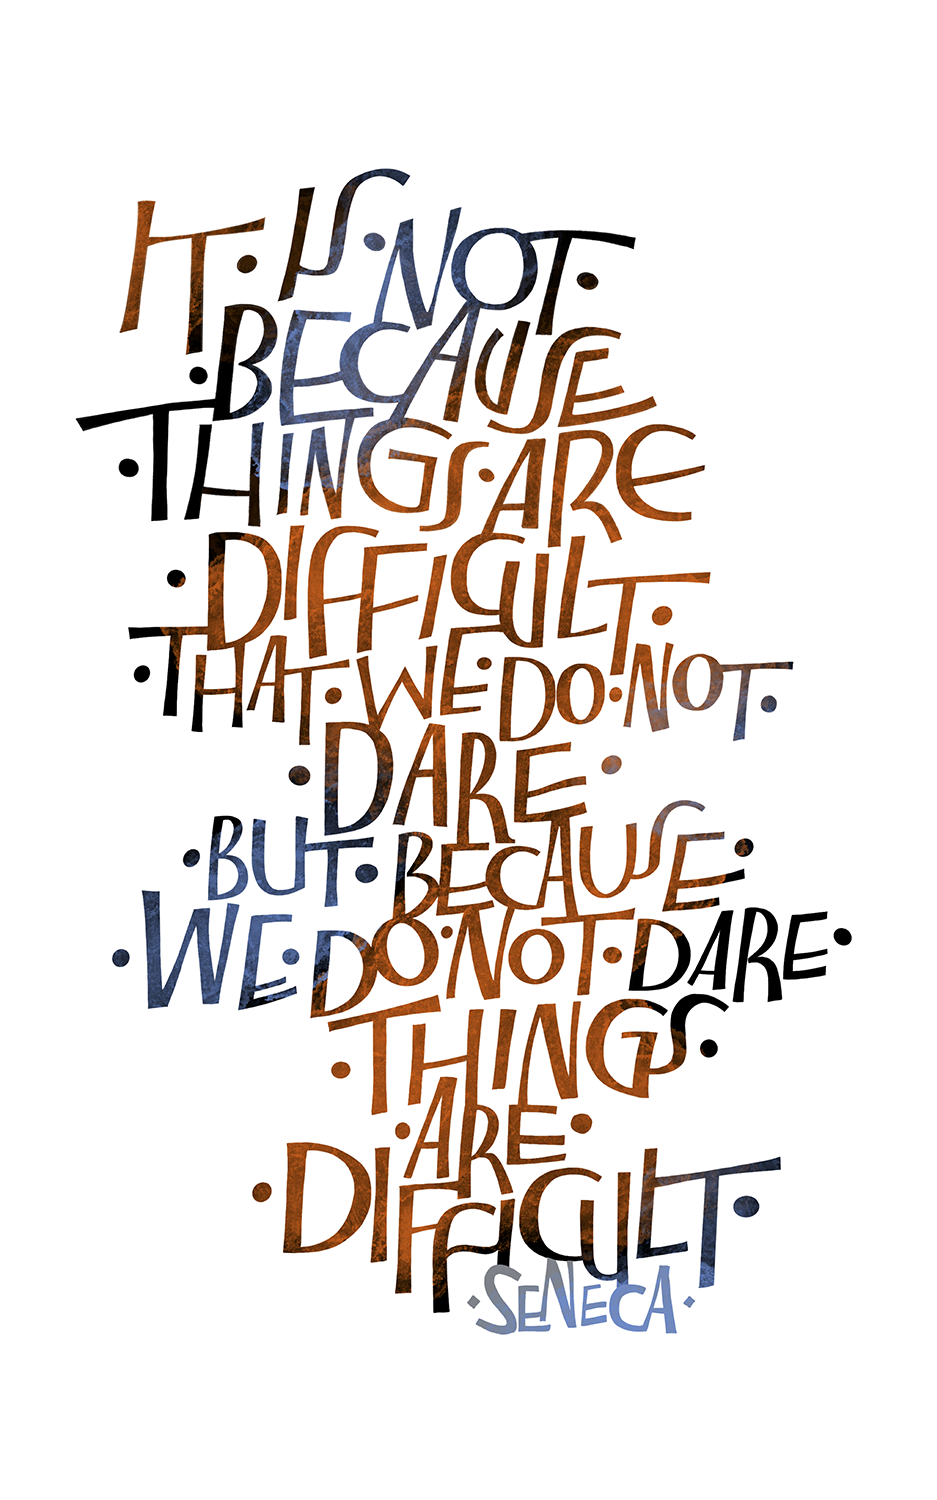 IT · IS · NOT ·
· BECAUSE
· THINGS · ARE
· DIFFICULT ·
· THAT · WE · DO · NOT ·
· DARE ·
· BUT · BECAUSE ·
· WE · DO · NOT · DARE ·
· THINGS ·
· ARE ·
· DIFFICULT ·
· SENECA ·